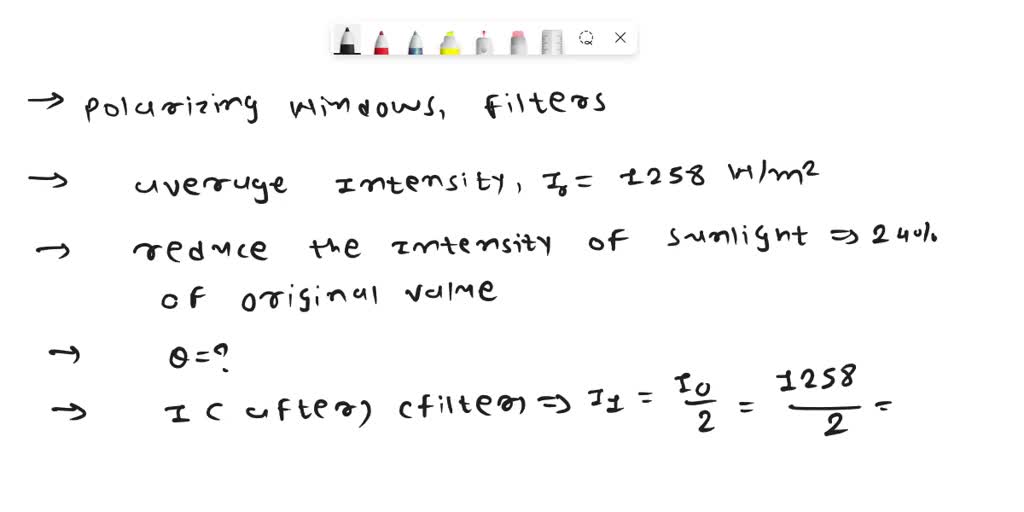 → polarizing windows, filters
→ average intensity, I₀ = 1258 W/m²
→ reduce the intensity of sunlight ⇒ 24%
of original value
→ θ = ?
→ I (after) (filter) ⇒ I₁ = I₀/2 = 1258/2 =